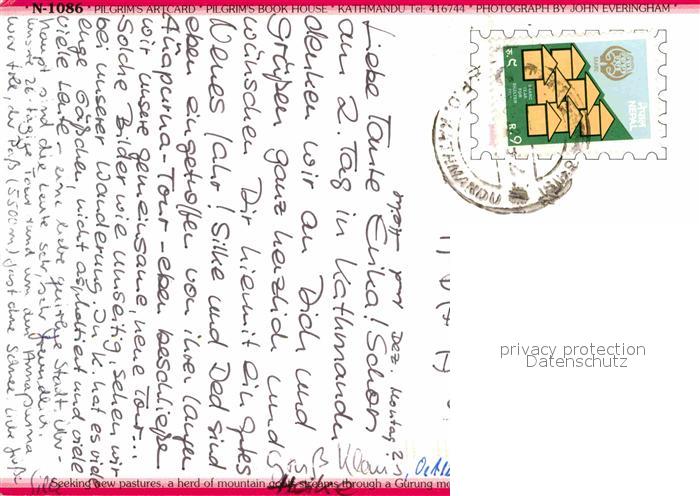 N-1086 • PILGRIM'S ARTCARD • PILGRIM'S BOOK HOUSE • KATHMANDU Tel: 416744 • PHOTOGRAPH BY JOHN EVERINGHAM •
Dez. Montag
Liebe Tante Erika! Schon
am 2. Tag in Kathmandu
denken wir an Dich und
Grüßen ganz herzlich und
wünschen Dir hiermit ein gutes
Neues Jahr! Silke und Ded sind
eben eingetroffen von ihrer langen
Anapurna-Tour - eben beschließen
wir unsere gemeinsame, neue Tour...
Solche Bilder wie umseitig sehen wir
bei unserer Wanderung. In K. hat es viele
enge Gäßchen, nicht asphaltiert und viele
viele Leute - eine liebe quirlige Stadt. Über-
haupt sind die Leute sehr, sehr freundlich.
unsere 26 tägige Tour rund um den Annapurna
war toll, der Paß (5500m) fast ohne Schnee. Liebe Grüße
Klaus
NEPAL
KATHMANDU
privacy protection
Datenschutz
Seeking new pastures, a herd of mountain goats streams through a Gurung